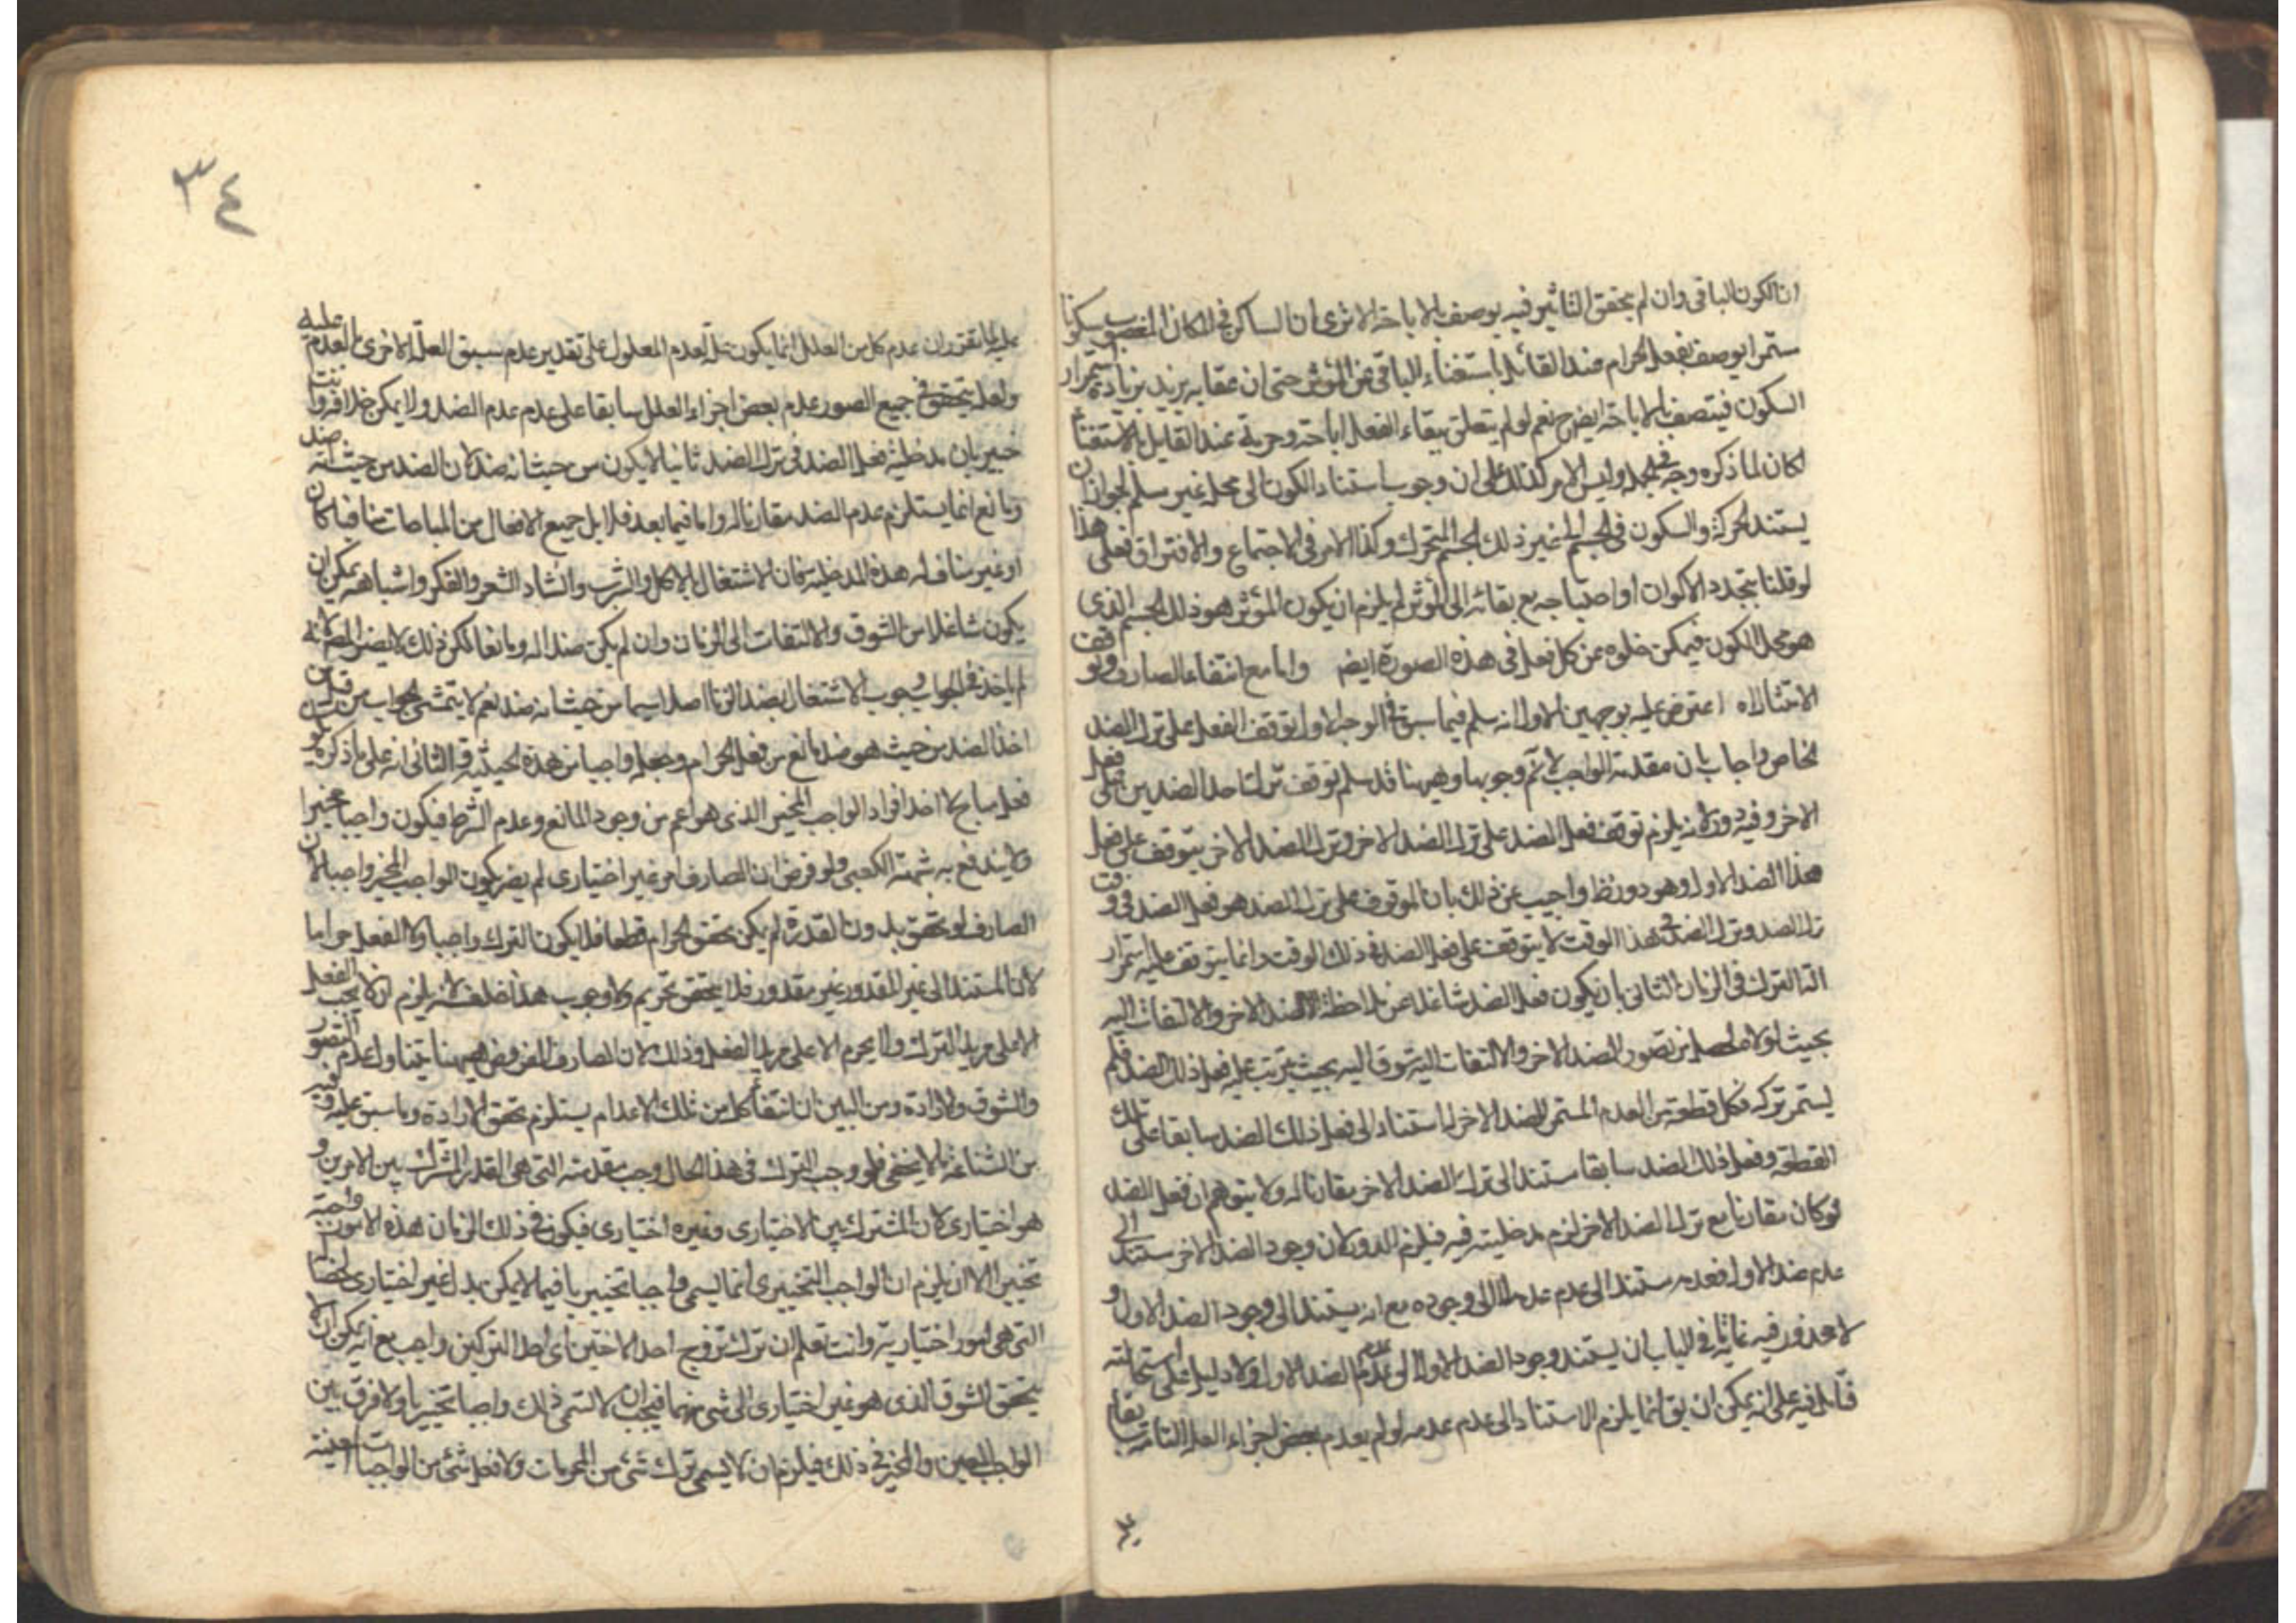 ان الكون الباقى وان لم يتحقق التاثير فيه يوصف بالاباحة الا ترى ان الساكن فى المكان المغصوب سكونا
مستمرا يوصف بفعل الحرام عند القائل باستغناء الباقى عن المؤثر حتى ان عقابه يزيد بزيادة استمرار
السكون فيتصف بالاباحة ايضا نعم لو لم يتعلق ببقاء الفعل اباحة وحرمة عند القايل بالاستغناء
لكان لما ذكره وجه فى الجملة وليس الامر كذلك على ان وجوب استناد الكون الى محله غير مسلم لجواز ان
يستند الحركة والسكون فى الجسم الى غير ذلك الجسم المتحرك وكذا الامر فى الاجتماع والافتراق فعلى هذا
لو قلنا بتجدد الاكوان او احتياجه مع بقائه الى المؤثر لم يلزم ان يكون المؤثر هو ذلك الجسم الذى
هو محل الكون فيمكن خلوه عن كل فعل فى هذه الصورة ايض واما مع انتفاء الصارف وتوقف
الامتثال اه اعترض عليه بوجهين الاول انه سلم فيما سبق فى الوجه الاول توقف الفعل على ترك الضد
الخاص واجاب بان مقدمة الواجب لا تم وجوبها وهيهنا قد سلم توقف ترك احد الضدين على فعل
الاخر وفيه دور لانه يلزم توقف فعل الضد على ترك الضد الاخر وترك الضد الاخر يتوقف على فعل
هذا الضد الاول وهو دور ظ واجيب عن ذلك بان الموقوف على ترك الضد هو فعل الضد فى وقت
ترك الضد وترك الضد فى هذا الوقت لا يتوقف على فعل الضد فى ذلك الوقت وانما يتوقف عليه استمرار
الترك فى الزمان الثانى بان يكون فعل الضد شاغلا عن ملاحظة الضد الاخر والالتفات اليه
بحيث لولاه لحصل من تصور الضد الاخر والالتفات اليه شوق اليه بحيث يترتب عليه فعل ذلك الضد فلم
يستمر تركه فكل قطعة من العدم المستمر للضد الاخر لها استناد الى فعل ذلك الضد سابقا على تلك
القطعة وفعل ذلك الضد سابقا مستند الى ترك الضد الاخر مقارنا له ولا يتوهم ان فعل الضد
لو كان مقارنا مع ترك الضد الاخر لزم مدخليته فيه فيلزم الدور لان وجود الضد الاخر مستند الى
عدم ضد الاول فعدمه مستند الى عدم عدمه لا الى وجوده مع انه يستند الى وجود الضد الاول و
لا محذور فيه غايته ما فى الباب ان يستند وجود الضد الاول الى عدم عدم الضد الاول ولا دليل على استحالته
فتامل فيه على انه يمكن ان يق انما يلزم الاستناد الى عدم عدمه لو لم يعدم بعض اجزاء العلة التامة سابقا
عليه لما تقرر ان عدم كل من العلل انما يكون علة لعدم المعلول على تقدير عدم سبق العلة الاخرى بالعدم عليه
ولعله يتحقق فى جميع الصور عدم بعض اجزاء العلل سابقا على عدم عدم الضد ولا يمكن خلافه وانت
خبير بان مدخلية فعل الضد فى ترك الضد ثانيا لا يكون من حيث انه ضد لان الضد من حيث انه ضد
ومانع انما يستلزم عدم الضد مقارنا له واما فيما بعد فلا بل جميع الافعال من المباحات منافيا كان
او غير مناف له هذه المدخلية فان الاشتغال بالاكل والشرب وانشاد الشعر والفكر واشباهه يمكن ان
يكون شاغلا من الشوق والالتفات الى الزنا وان لم يكن ضدا له ومانعا لكن ذلك لا يضر المصنف لانه
لم ياخذ فى الجواب وجوب الاشتغال بضد الزنا اصلا سيما من حيث انه ضد نعم لا يتمشى الجواب من قبل من
اخذ الضد من حيث هو ضد مانع من فعل الحرام وجعله واجبا من هذه الحيثية والثانى انه على ما ذكره يكون
فعل مباح ما احد افراد الواجب المخير الذى هو اعم من وجود المانع وعدم الشرط فيكون واجبا مخيرا
ولا يندفع به شبهة الكعبى ولو فرض ان الصارف امر غير اختيارى لم يضر بكون الواجب المخير واجبا لان
الصارف لو تحقق بدون القدرة لم يكن تحقق الحرام قطعا فلا يكون الترك واجبا ولا الفعل حراما
لان المستند الى غير المقدور غير مقدور فلا يتحقق تحريم ولا وجوب هذا خلف لانه يلزم ان لا يجب الفعل
الا على مريد الترك ولا يحرم الا على مريد الفعل وذلك لان الصارف المفروض هيهنا يتناول عدم التصور
والشوق والارادة ومن البين ان انتفاء كل من تلك الاعدام يستلزم تحقق الارادة وما سبق عليه وفيه
من الشناعة ما لا يخفى فلو وجب الترك فى هذا الحال وجب مقدمته التى هى القدر المشترك بين الامرين و
هو اختيارى لان المشترك بين الاختيارى وغيره اختيارى فيكون فى ذلك الزمان هذه الامور واجبة
تخييرا الا ان يلزم ان الواجب التخييرى انما يسمى واجبا تخييريا فيما لا يمكن بدل غير اختيارى لخصا
التى هى امور اختيارية وانت تعلم ان ترك تزوج احد الاختين اى احد التركين واجب مع انه يمكن ان لا
يتحقق الشوق الذى هو غير اختيارى الى شئ منهما فيجب ان لا تسمى ذلك واجبا تخييريا ولا فرق بين
الواجب المعين والمخير فى ذلك فيلزم ان لا يسمى ترك شئ من المحرمات ولا فعل شئ من الواجبات المعينة
٣٤